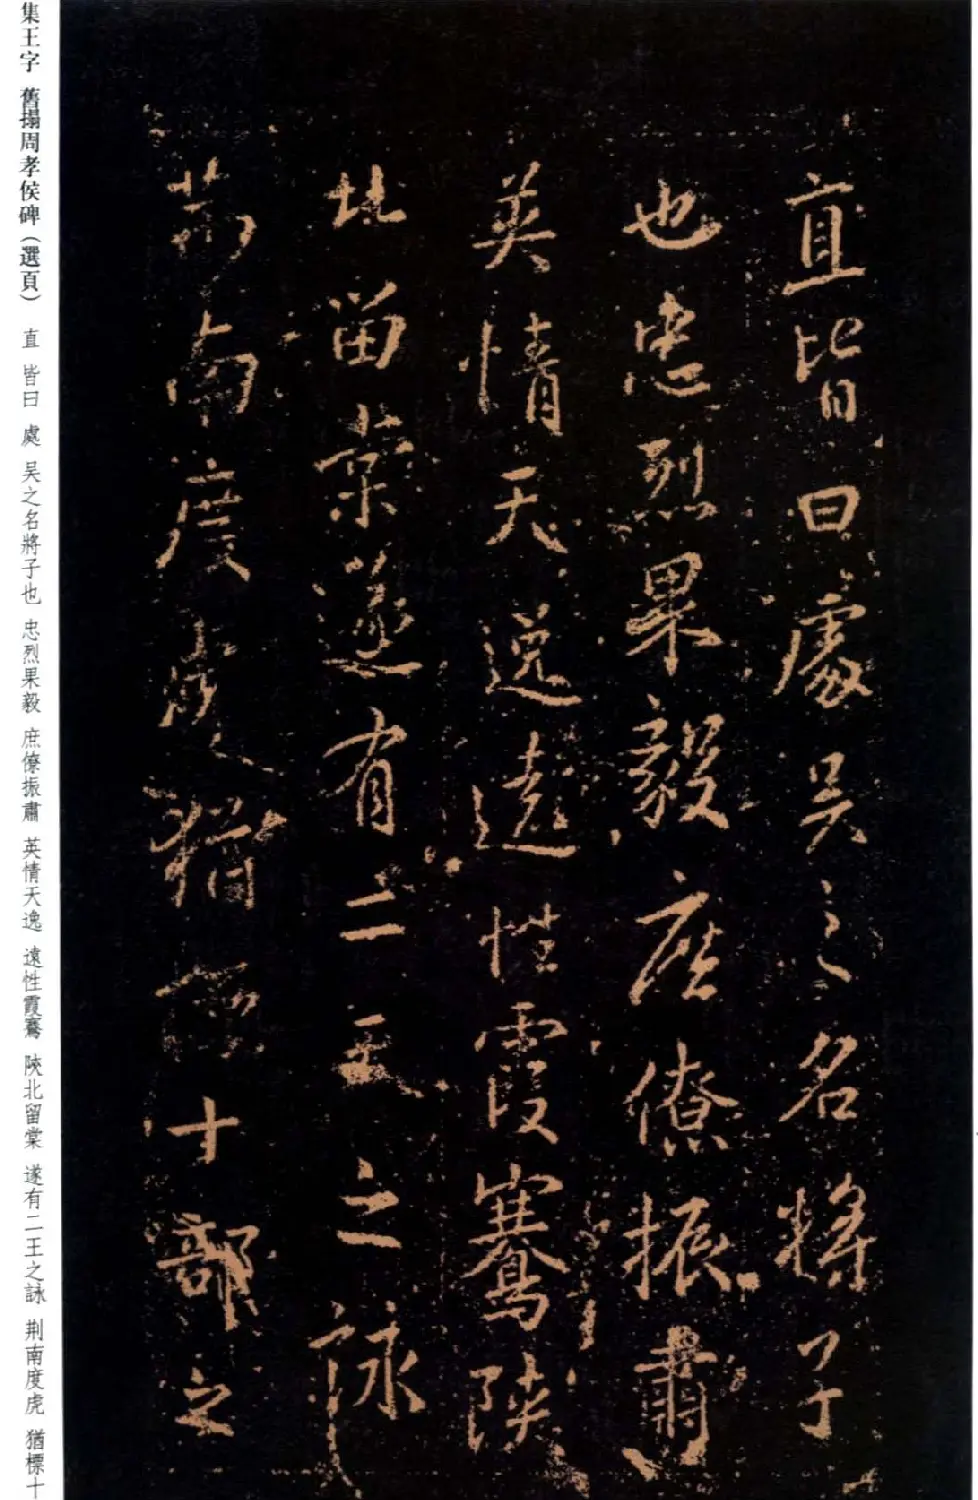 直皆曰處吳之名將子
也忠烈果毅庶僚振肅
英情天逸遠性霞騫陝
北留棠遂有二王之詠
荊南度虎猶標十部之
集王字 舊搨周孝侯碑（選頁） 直 皆曰 處 吴之名將子也 忠烈果毅 庶僚振肅 英情天逸 遠性霞騫 陝北留棠 遂有二王之詠 荆南度虎 猶標十